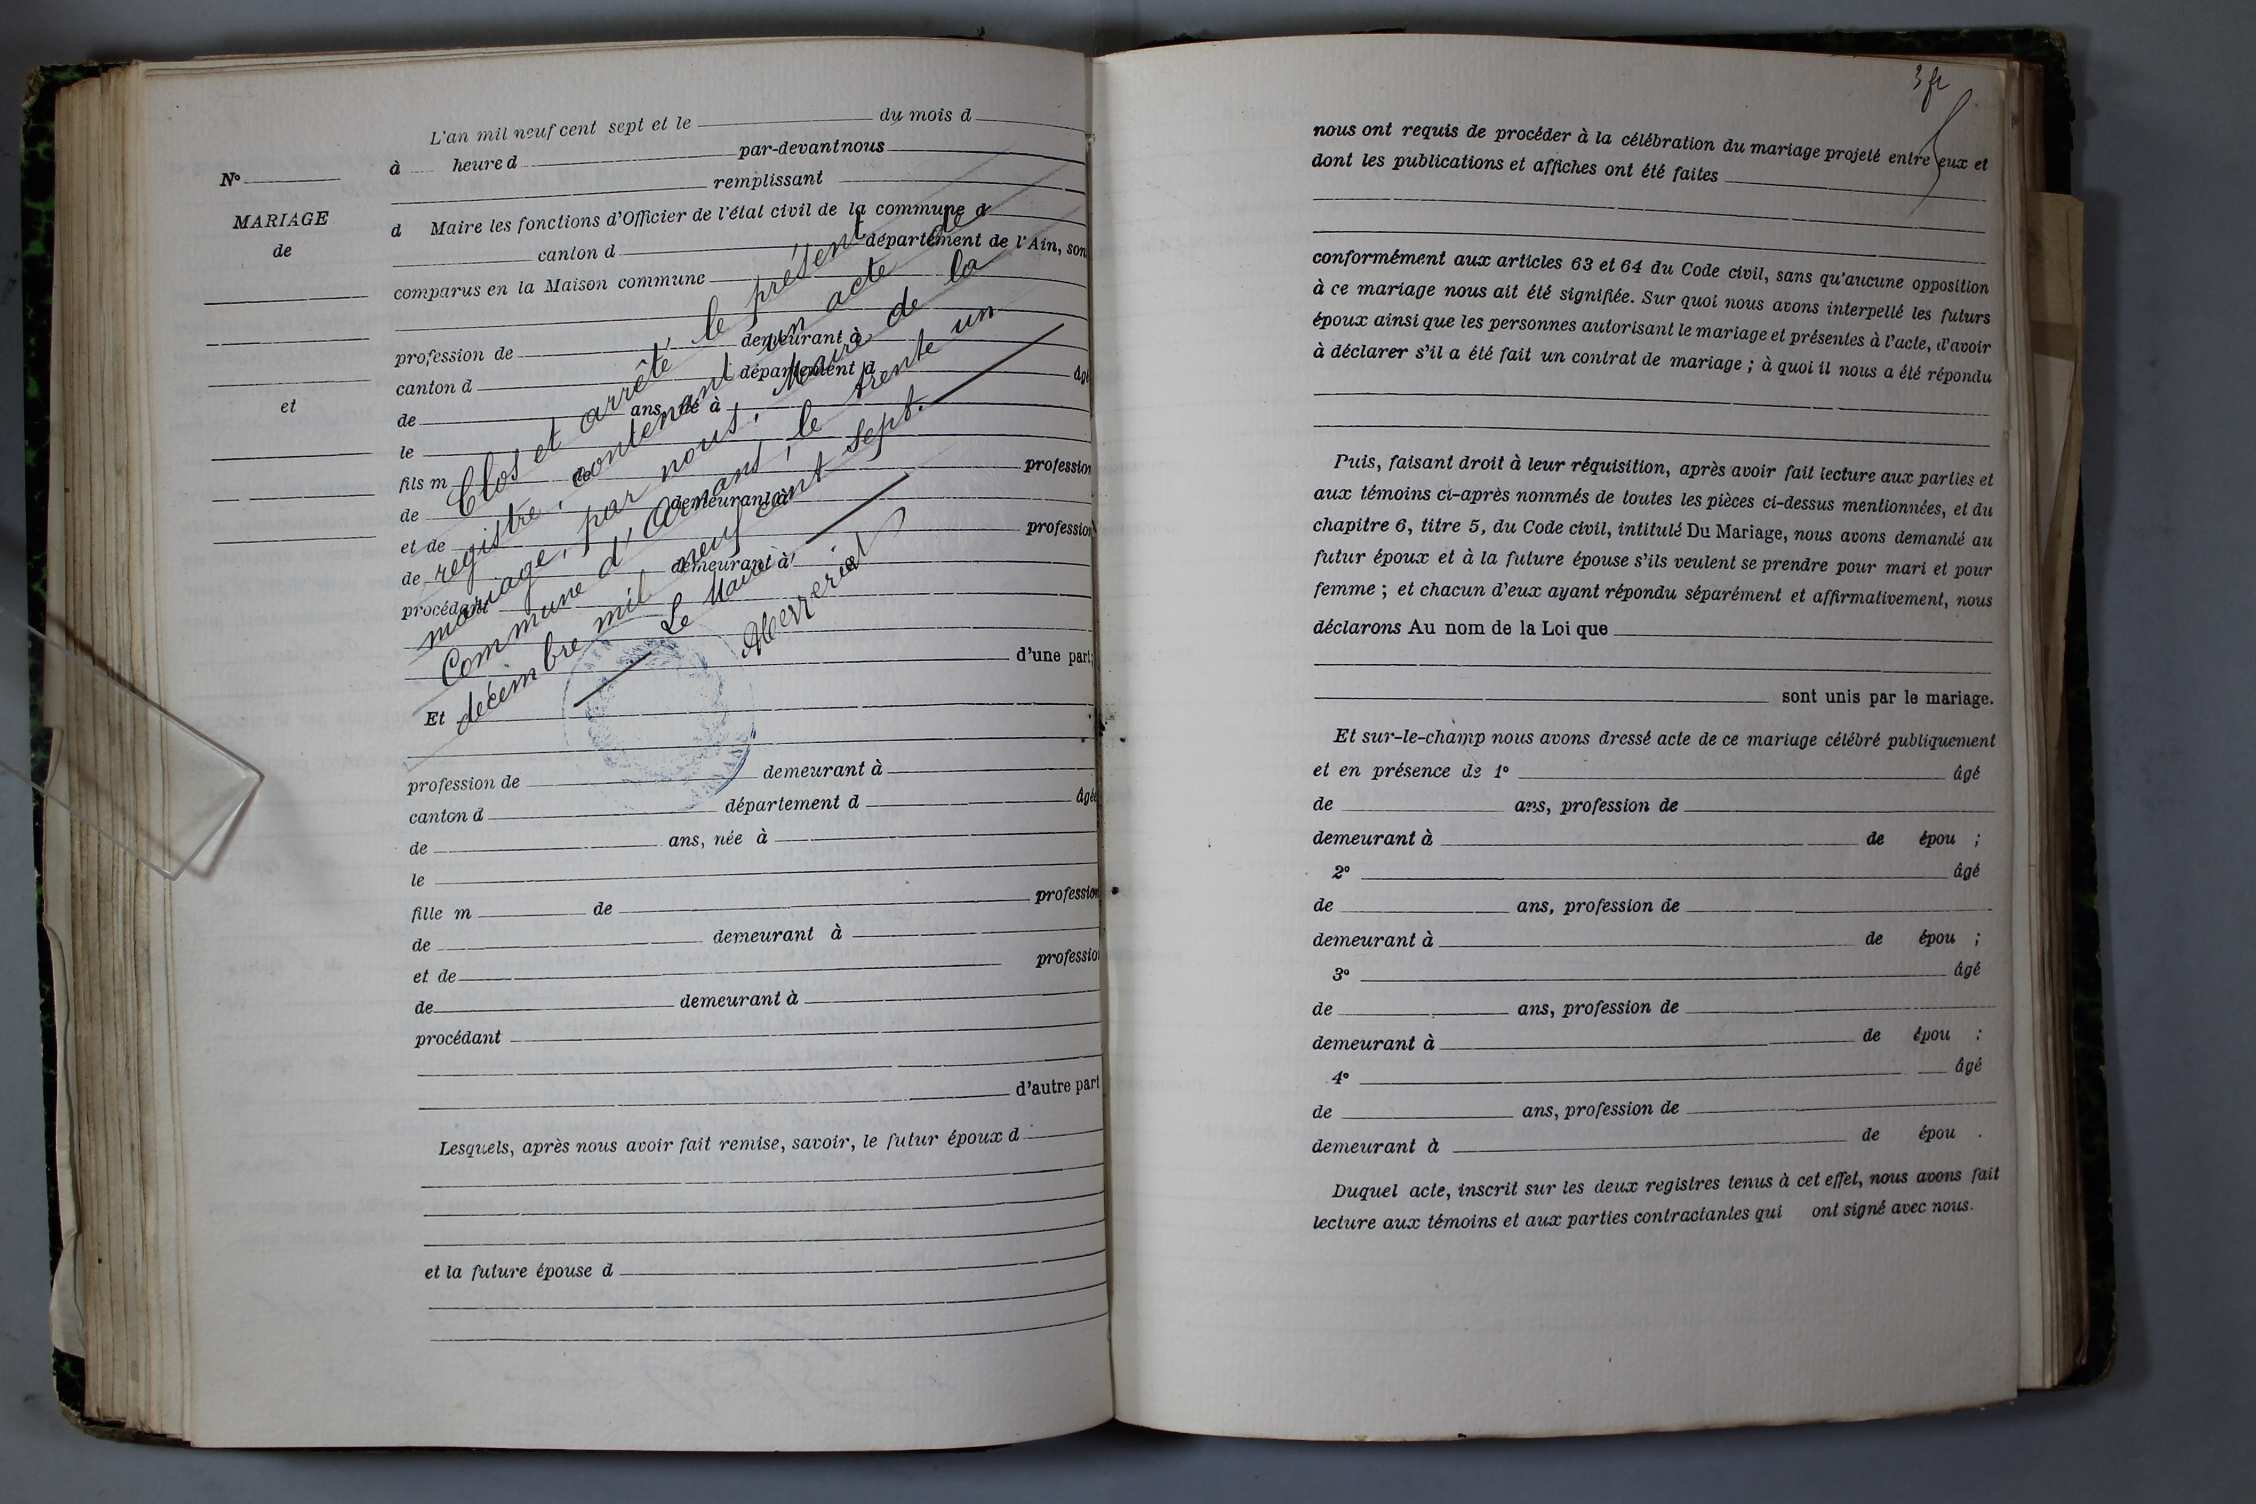 N°
MARIAGE
de
et
L'an mil neuf cent sept et le du mois d
à heure d par-devant nous
remplissant
d Maire les fonctions d'Officier de l'état civil de la commune d
canton d département de l'Ain, son
comparus en la Maison commune
profession de demeurant à
canton d département d âgé
de ans, né à
le
fils m de profession
de demeurant à
et de profession
de demeurant à
procédant
d'une part;
Clos et arrêté, le présent
registre, contenant un acte de
mariage, par nous, Maire de la
Commune d' , le trente un
décembre mil neuf cent sept.
Le Maire,
Et
profession de demeurant à
canton d département d âgée
de ans, née à
le
fille m de profession
de demeurant à
et de professio
de demeurant à
procédant
d'autre part
Lesquels, après nous avoir fait remise, savoir, le futur époux d
et la future épouse d
3 fr
nous ont requis de procéder à la célébration du mariage projeté entre eux et
dont les publications et affiches ont été faites
conformément aux articles 63 et 64 du Code civil, sans qu'aucune opposition
à ce mariage nous ait été signifiée. Sur quoi nous avons interpellé les futurs
époux ainsi que les personnes autorisant le mariage et présentes à l'acte, d'avoir
à déclarer s'il a été fait un contrat de mariage ; à quoi il nous a été répondu
Puis, faisant droit à leur réquisition, après avoir fait lecture aux parties et
aux témoins ci-après nommés de toutes les pièces ci-dessus mentionnées, et du
chapitre 6, titre 5, du Code civil, intitulé Du Mariage, nous avons demandé au
futur époux et à la future épouse s'ils veulent se prendre pour mari et pour
femme ; et chacun d'eux ayant répondu séparément et affirmativement, nous
déclarons Au nom de la Loi que
sont unis par le mariage.
Et sur-le-champ nous avons dressé acte de ce mariage célébré publiquement
et en présence de 1° âgé
de ans, profession de
demeurant à de épou ;
2° âgé
de ans, profession de
demeurant à de épou ;
3° âgé
de ans, profession de
demeurant à de épou ;
4° âgé
de ans, profession de
demeurant à de épou .
Duquel acte, inscrit sur les deux registres tenus à cet effet, nous avons fait
lecture aux témoins et aux parties contractantes qui ont signé avec nous.